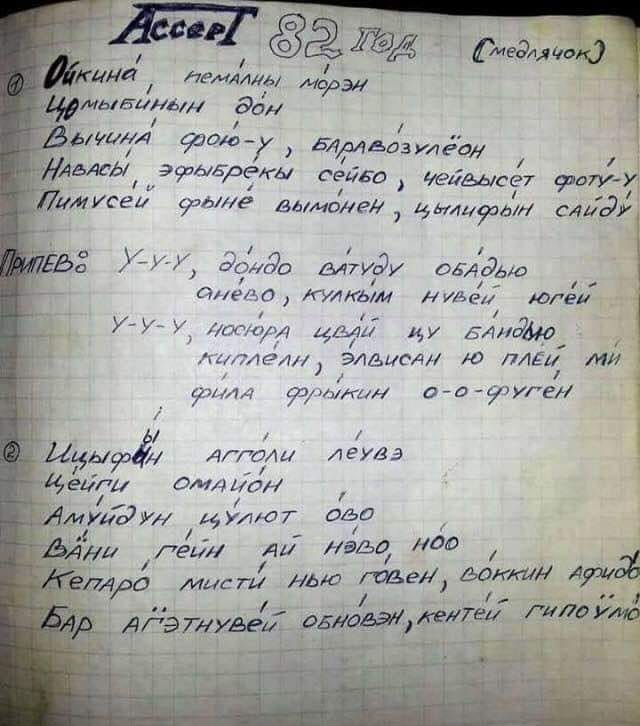 АссерТ 82 год (медлячок)
① Ойкина́ немáлны мóрэн
Цомыби́нын дóн
Вычинá фою́-у, баравóзулёон
Навасы́, эфыбрéкы сéйбо, чейвысéт фоту́-у
Пимусéй фынé вымóнен, цылифы́н сайду́
Припев: У-у-у, дóндо вáтуду обáдью
анéво, кулкы́м нувéй югéй
У-у-у, носю́ра цвáй цу бáндью
киплéлн, э́лвисан ю плéй ми́
фи́ла фры́кин о-о-фугéн
② Ицыфы́н аггóли лéувэ
Цéйги омайóн
Аму́йдун цу́лют óво
Вáни гéйн ай нэ́во, нóо
Кепарó мисти́ нью гóвен, вóккин афидó
Бар агэтнувéй обнóвэн, кентéй гипоумó